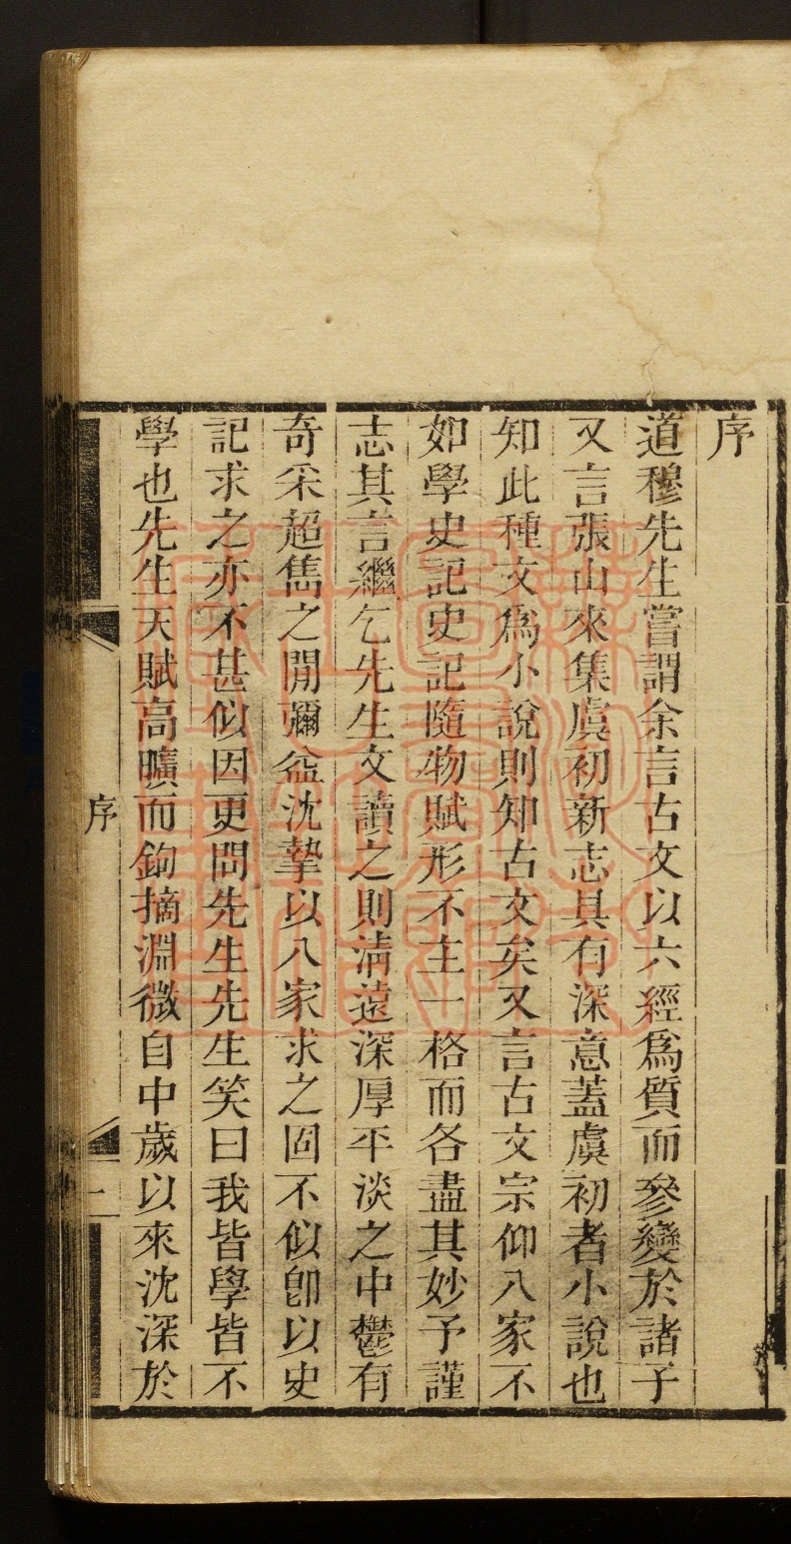 序
道穆先生嘗謂余言古文以六經爲質而參變於諸子
又言張山來集虞初新志具有深意蓋虞初者小說也
知此種文爲小說則知古文矣又言古文宗仰八家不
如學史記史記隨物賦形不主一格而各盡其妙予謹
志其言繼乞先生文讀之則清遠深厚平淡之中鬱有
奇采超雋之開彌益沈摯以八家求之固不似卽以史
記求之亦不甚似因更問先生先生笑曰我皆學皆不
學也先生天賦高曠而鉤摘淵微自中歲以來沈深於
序
二